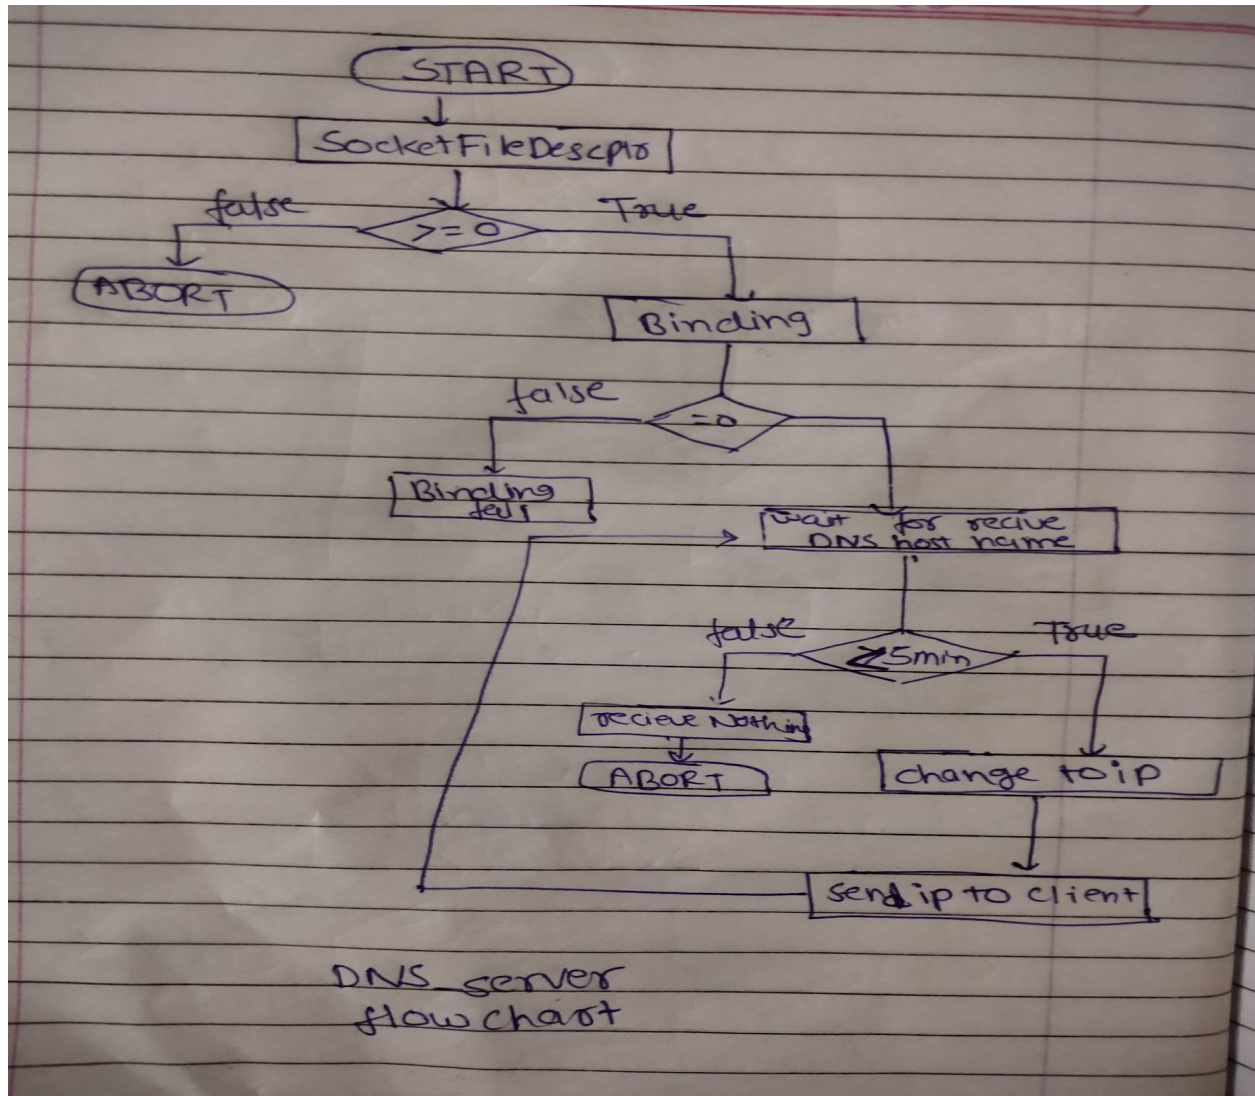 START
SocketFileDescpto
false
True
>=0
ABORT
Binding
false
=0
Binding
fails
wait for recive
DNS host name
false
True
5min
recieve Nothing
ABORT
change to ip
send ip to client
DNS_server
flow chart